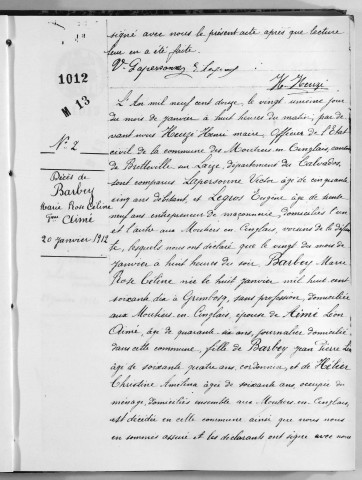 signé avec nous le présent acte après que lecture
leur en a été faite.
V. Lapersonne E. Legros
H. Heuzé
1912
M 13
N° 2
Décès de
Barbey
Marie Rose Céline
fme Aimé
20 janvier 1912
L'An mil neuf cent douze, le vingt unième jour
du mois de janvier à huit heures du matin, par de
vant nous Heuzé Henri maire, Officier de l'Etat
civil de la commune des Moutiers en Cinglais, canton
de Bretteville sur Laize, département du Calvados,
sont comparus Lapersonne Victor âgé de cinquante
cinq ans débitant, et Legros Eugène âgé de trente
neuf ans entrepreneur de maçonnerie, domiciliés l'un
et l'autre aux Moutiers en Cinglais, voisins de la défun
te, lesquels nous ont déclaré que le vingt du mois de
janvier à huit heures du soir Barbey Marie
Rose Céline née le huit janvier mil huit cent
soixante dix à Grimbosq, sans profession, domiciliée
aux Moutiers en Cinglais, épouse de Aimé Léon
Aimé, âgé de quarante six ans, journalier domicilié
dans cette commune, fille de Barbey Jean Pierre
âgé de soixante quatre ans, cordonnier, et de
Christine Amélina âgée de soixante ans occupée du
ménage domiciliés ensemble aux Moutiers en Cinglais,
est décédée en cette commune ainsi que nous nous
en sommes assuré et les déclarants ont signé avec nous